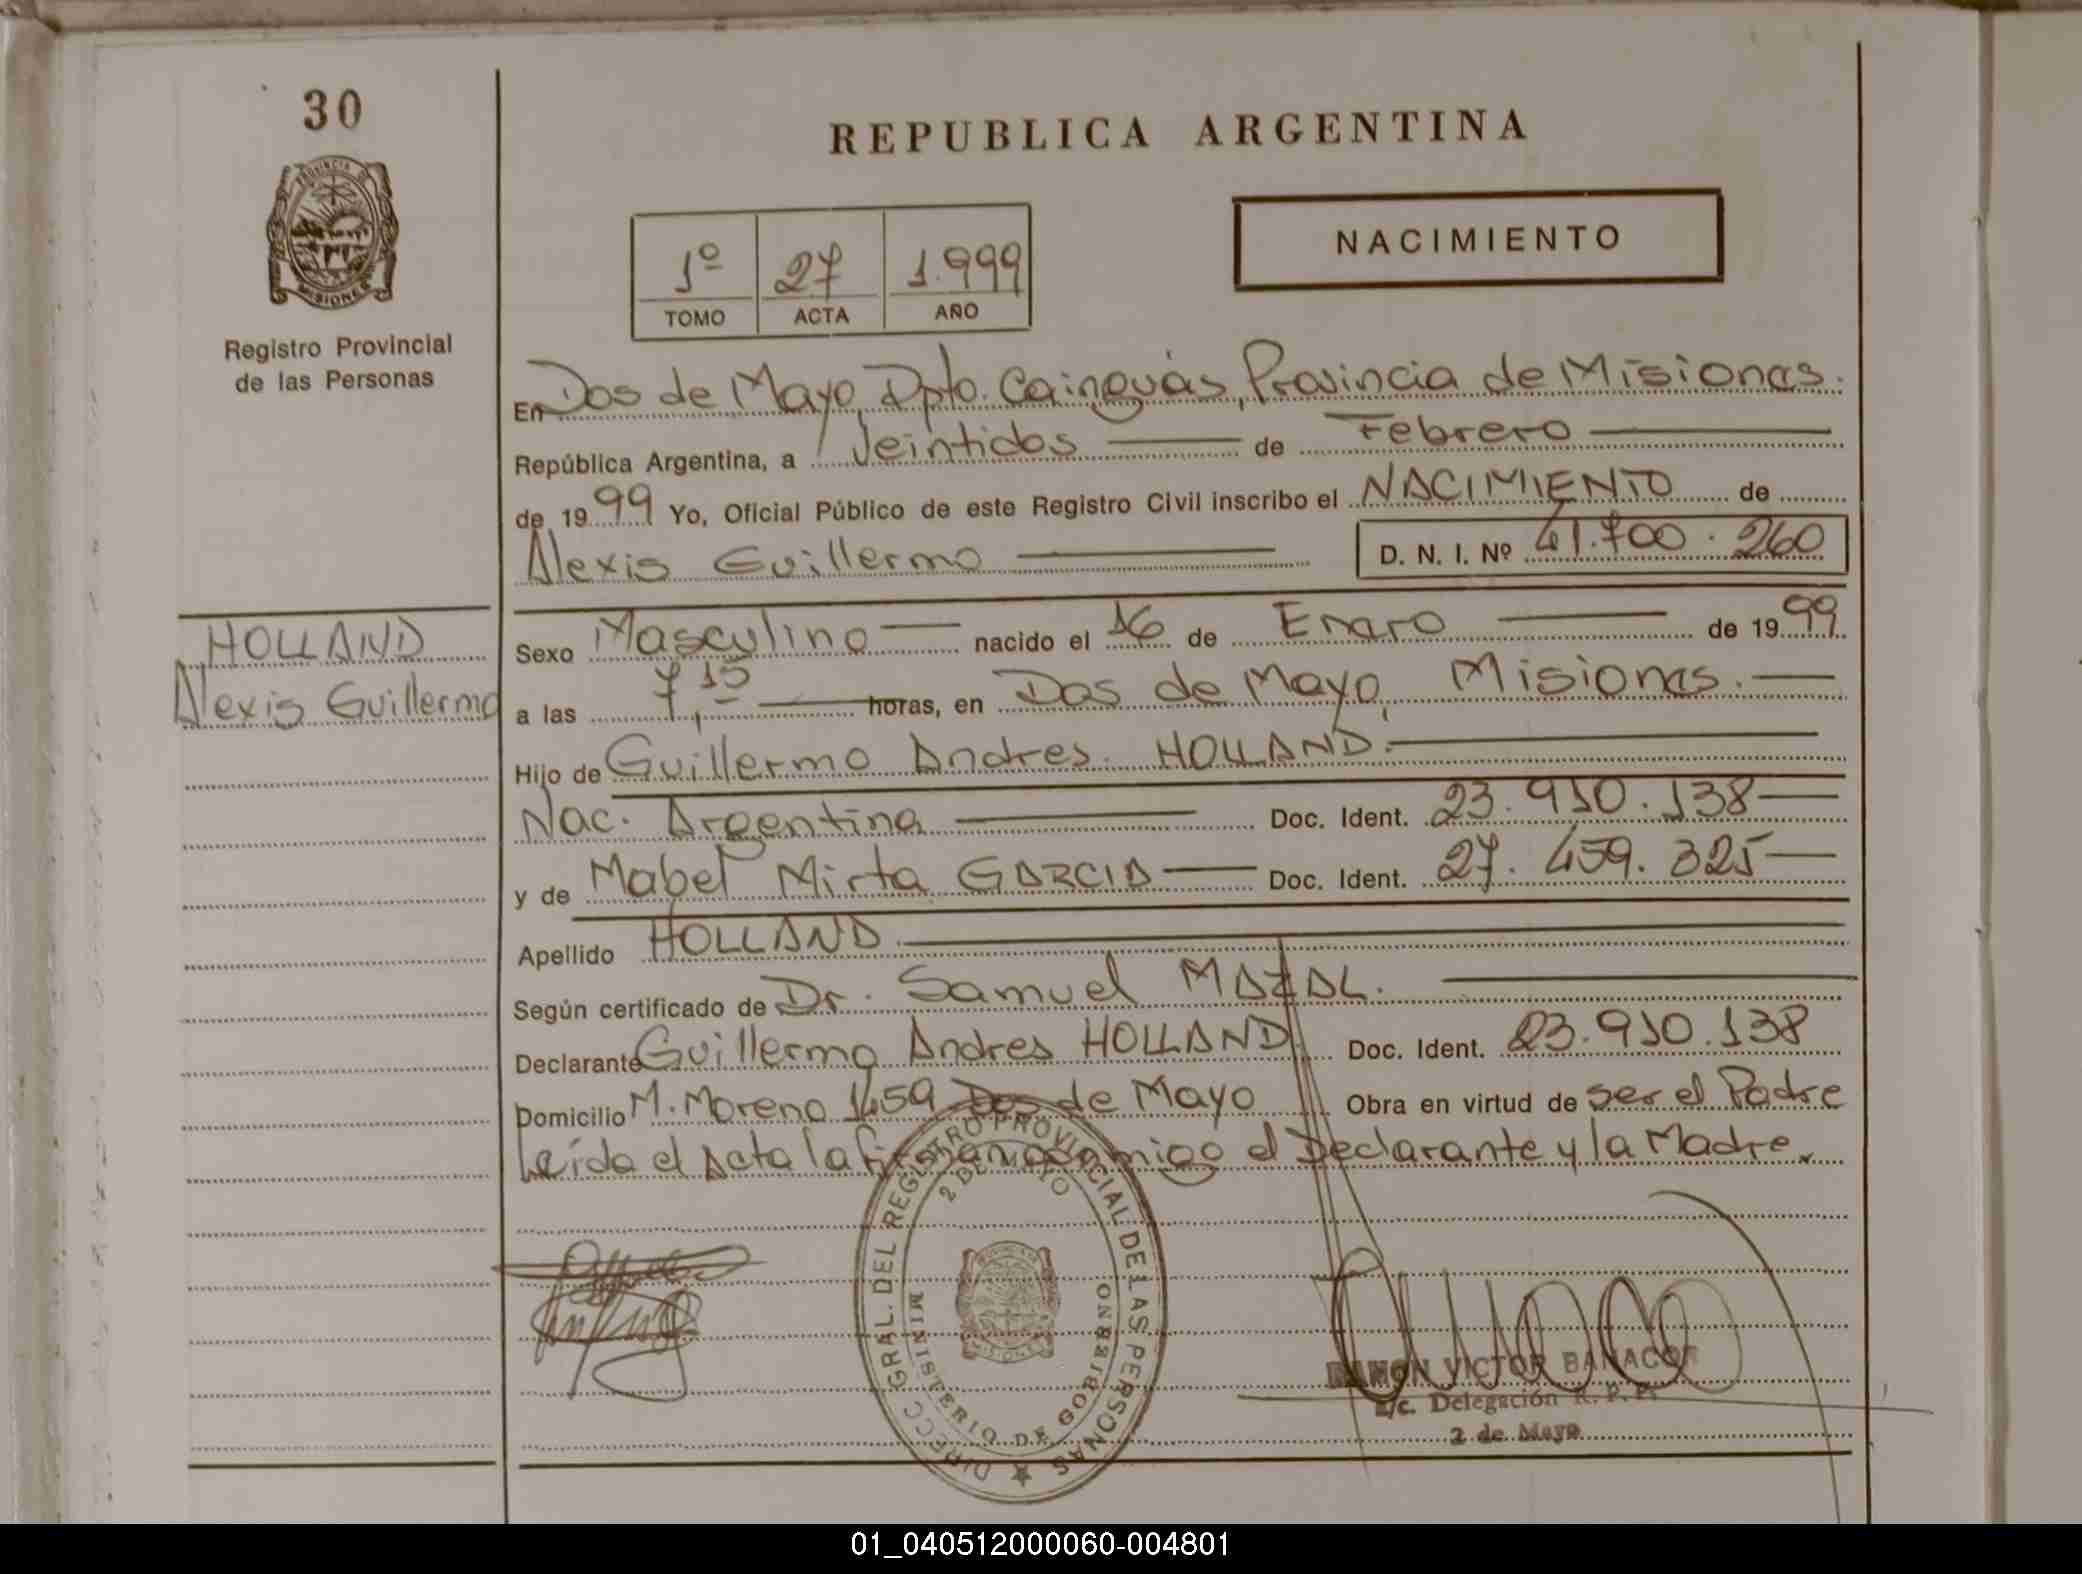 30
PROVINCIA DE
MISIONES
Registro Provincial
de las Personas
REPUBLICA ARGENTINA
1º 27 1.999
TOMO ACTA AÑO
NACIMIENTO
En Dos de Mayo, Dpto. Cainguás, Provincia de Misiones.
República Argentina, a Veintidos de Febrero
de 1999 Yo, Oficial Público de este Registro Civil inscribo el NACIMIENTO de
Alexis Guillermo D. N. I. Nº 41.700.260
HOLLAND
Alexis Guillermo
Sexo Masculino nacido el 16 de Enero de 1999
a las 7,15 horas, en Dos de Mayo, Misiones.
Hijo de Guillermo Andres HOLLAND.
Nac. Argentina Doc. Ident. 23.910.138
y de Mabel Mirta GARCIA Doc. Ident. 27.459.325
Apellido HOLLAND
Según certificado de Dr. Samuel MAZAL.
Declarante Guillermo Andres HOLLAND Doc. Ident. 23.910.138
Domicilio M. Moreno 1459 Dos de Mayo Obra en virtud de ser el Padre
Leída el Acta la firman conmigo el Declarante y la Madre.
DIRECC GRAL. DEL REGISTRO PROVINCIAL DE LAS PERSONAS
2 DE MAYO
MINISTERIO DE GOBIERNO
RAMON VICTOR BANACOR
E/c. Delegación R. P. P.
2 de Mayo
01_040512000060-004801